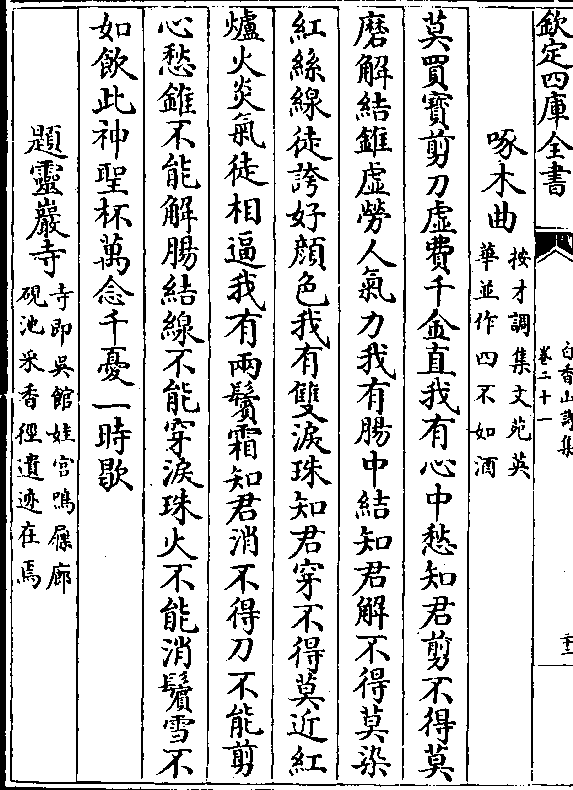 欽定四庫全書
白香山詩集
卷二十一
啄木曲
按才調集文苑英
華並作四不如酒
莫買寶剪刀虛費千金直我有心中愁知君剪不得莫
磨解結錐虛勞人氣力我有腸中結知君解不得莫染
紅絲線徒誇好顏色我有雙淚珠知君穿不得莫近紅
爐火炎氣徒相逼我有兩鬢霜知君消不得刀不能剪
心愁錐不能解腸結線不能穿淚珠火不能消鬢雪不
如飲此神聖杯萬念千憂一時歇
題靈巖寺
寺即吳館娃宮鳴屧廊
硯池采香徑遺迹在焉